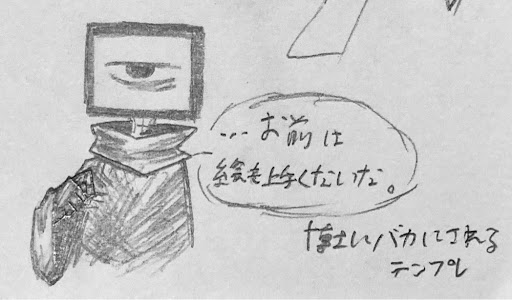 …お前は
絵も上手くないな。
博士にバカにされる
テンプレ